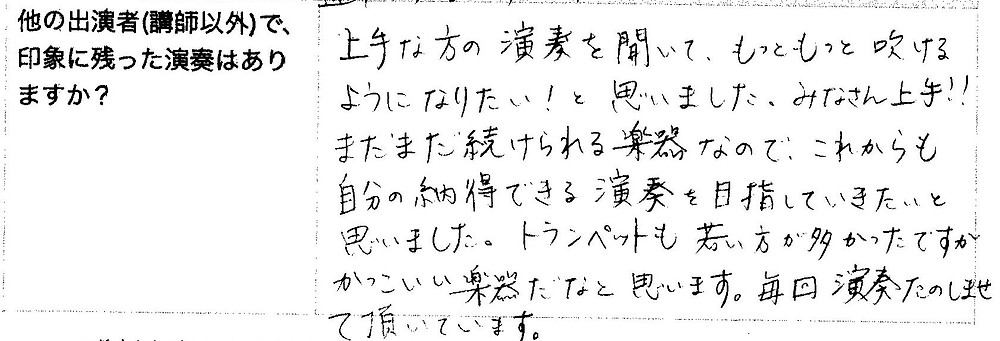 他の出演者(講師以外)で、
印象に残った演奏はあり
ますか？
上手な方の演奏を聞いて、もっともっと吹ける
ようになりたい！と思いました。みなさん上手!!
まだまだ続けられる楽器なので、これからも
自分の納得できる演奏を目指していきたいと
思いました。トランペットも若い方が多かったですが
かっこいい楽器だなと思います。毎回演奏たのしませ
て頂いています。